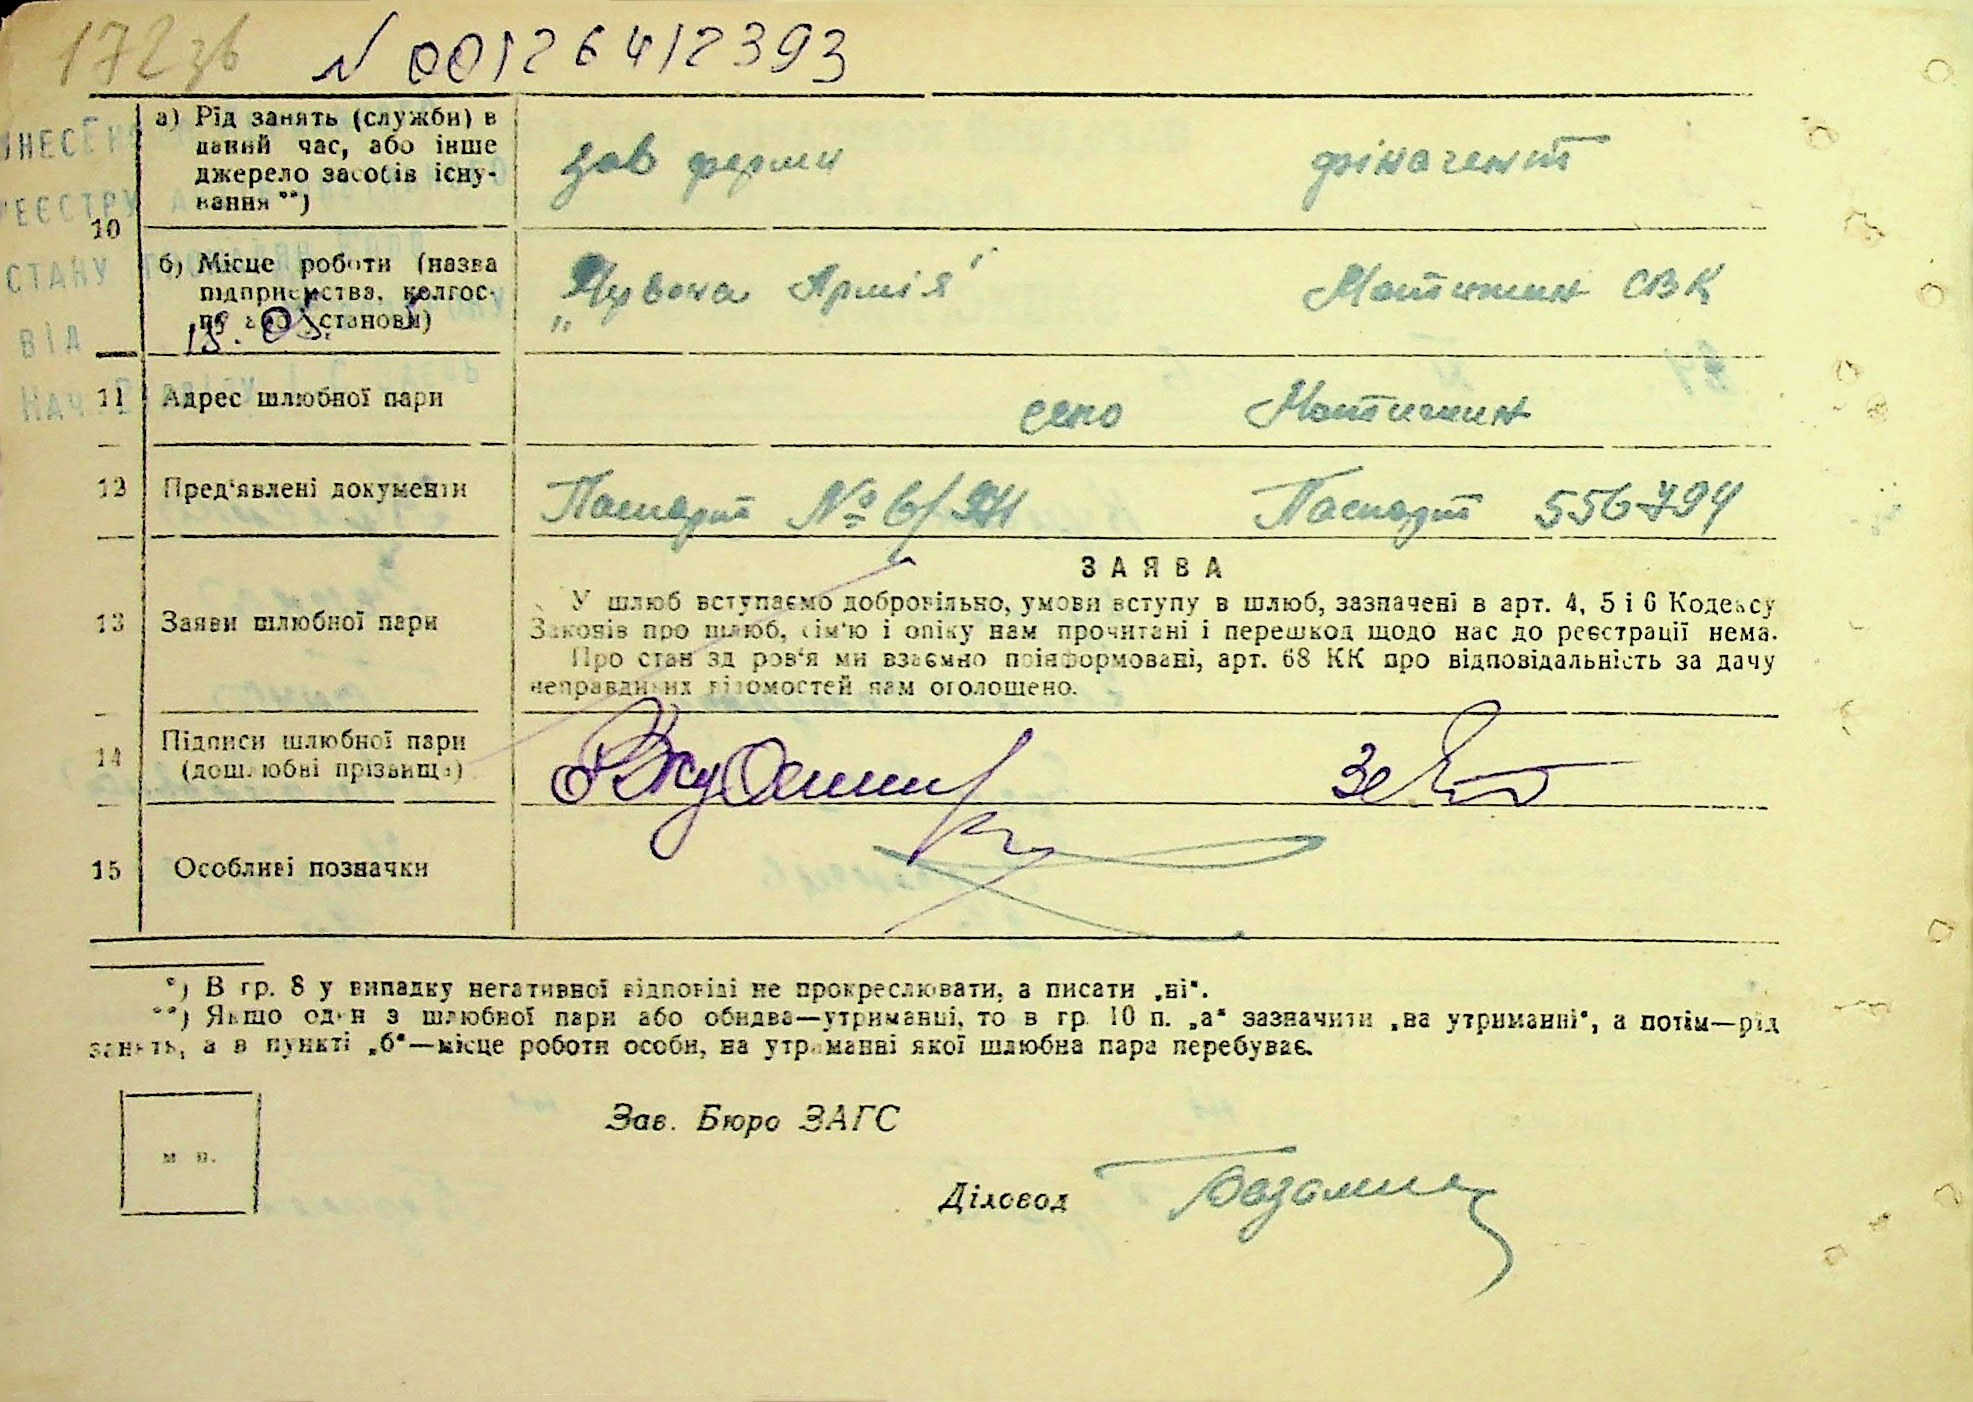 172 зв N 00126412393
10
а) Рід занять (служби) в
даний час, або інше
джерело засобів існу-
вання **)
зав ферми фінагент
б) Місце роботи (назва
підприємства, колгос-
пу або установи)
„Червона Армія" Мотижин СВК
ВНЕСЕНО
РЕЄСТРУ
СТАНУ
15.05.
ВІД
НАЧ
11 Адрес шлюбної пари село Мотижин
12 Пред'явлені документи Паспорт № Паспорт 556794
13 Заяви шлюбної пари
ЗАЯВА
У шлюб вступаємо добровільно, умови вступу в шлюб, зазначені в арт. 4, 5 і 6 Кодексу
Законів про шлюб, сім'ю і опіку нам прочитані і перешкод щодо нас до реєстрації нема.
Про стан здоров'я ми взаємно поінформовані, арт. 68 КК про відповідальність за дачу
неправдивих відомостей нам оголошено.
14 Підписи шлюбної пари
(дошлюбні прізвища)
15 Особливі позначки
*) В гр. 8 у випадку негативної відповіді не прокреслювати, а писати „ні".
**) Якщо один з шлюбної пари або обидва—утриманці, то в гр. 10 п. „а" зазначити „на утриманні", а потім—рід
занять, а в пункті „б"—місце роботи особи, на утриманні якої шлюбна пара перебуває.
м п.
Зав. Бюро ЗАГС
Діловод